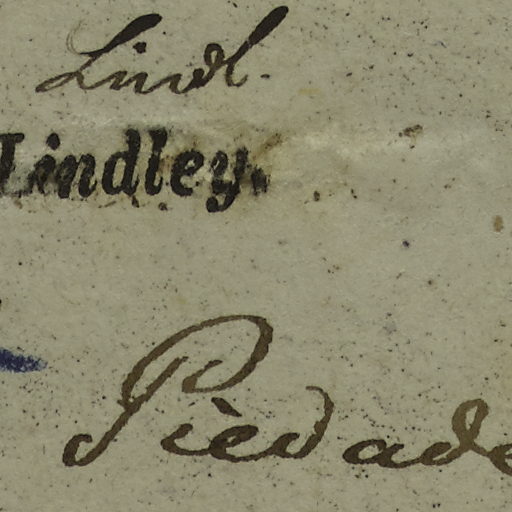 Lindl.
Lindley.
Piedade